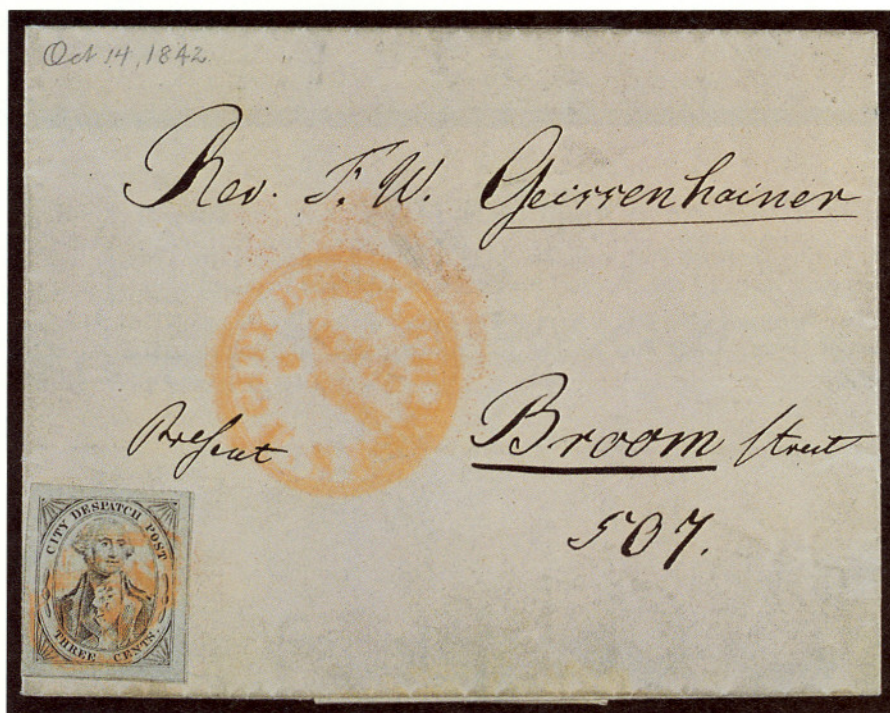 Oct 14, 1842.
Rev. F. W. Geissenhainer
CITY DESPATCH POST N.Y.
OCT 15
Present
Broom Street
507.
CITY DESPATCH POST
THREE CENTS.